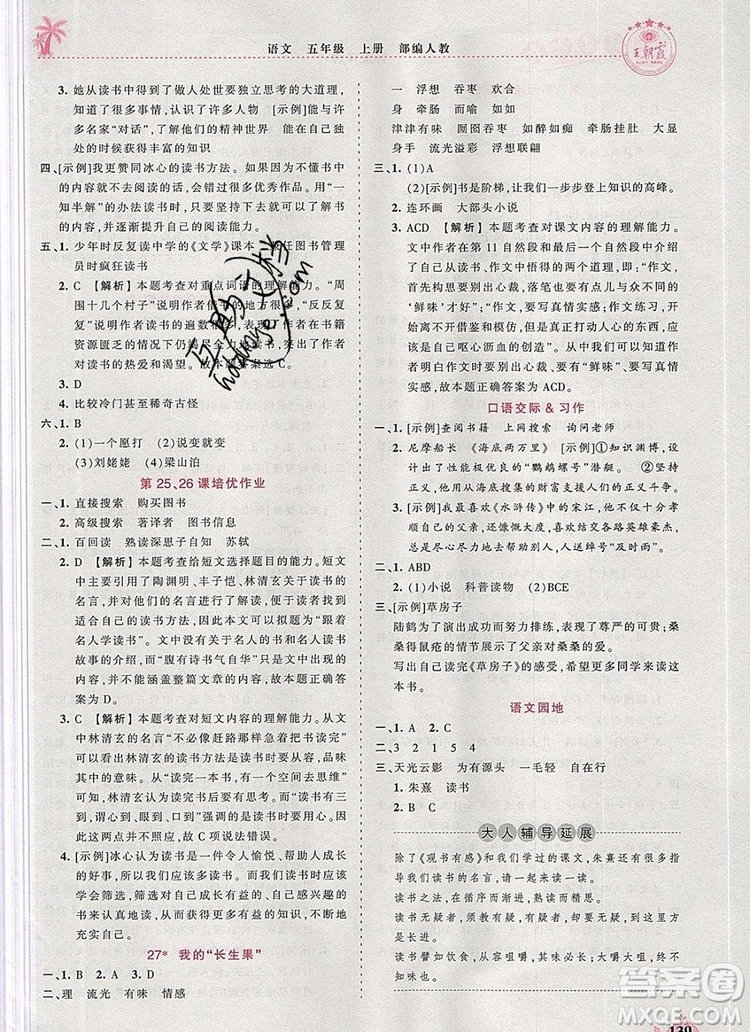 语文 五年级 上册 部编人教
王朝霞
3. 她从读书中得到了做人处世要独立思考的大道理,
知道了很多事情,认识了许多人物 [示例]能与许
多名家“对话”,了解他们的精神世界 能在自我独
处时获得丰富的知识
四、[示例]我更赞同冰心的读书方法。如果因为不懂书中
的内容就不去阅读的话,会错过很多优秀作品。“一
知半解”的方法,可以促使我们坚持阅读下去,了解书
的内容,而且可以提升自己的阅读能力。
五、1. 少年时反复读中学的《文学》课本
任图书管理
员时疯狂读书
2. C [解析]本题考查对重点词语的理解能力。“周
围十几个村子”说明作者借书的范围广,“反反复
复”说明作者读书的遍数很多,表现了作者在书籍
资源匮乏的情况下仍尽全力地读书,表达了作者对
读书的热爱和渴望。故本题答案选C。
3. D
4. 比较冷门甚至稀奇古怪
六、1. B
2. (1)一个愿打 (2)说变就变
(3)刘姥姥 (4)梁山泊
第25、26课培优作业
一、1. 直接搜索 购买图书
2. 高级搜索 著译者 图书信息
二、1. 百回读 熟读深思子自知 苏轼
2. D [解析]本题考查给短文选择题目的能力。短文
中主要列举了陶渊明、丰子恺、林清玄等关于读书的
名言,介绍了读书的益处、读书的方法,引导读者了
解这些名言中的道理,因此可以拟题为“跟着
名人学读书”。文中没有关于名人的书和名人读书
故事的介绍,而“腹有诗书气自华”只是其中一句名
言的内容,不能涵盖整篇文章的内容,故本题答案
为D。
3. C [解析]本题考查对短文内容的理解能力。从文
中林清玄的名言“不要匆匆忙忙赶路地把书读完”
可以看出他的读书方法重在慢慢品读,体会书中的
意味,而不是“读完一本书,有一个空间去思想”。
林清玄认为读书应做到“读完这本书时,有‘三到’,
即心到、眼到、口到”的说法是对“三到”内容的张冠
李戴。故本题中C项说法错误。
4. [示例]冰心认为读书是一件令人愉悦、帮助人成长
的好事情,多读书能帮助我们在面对繁多的书籍
时,筛选出对自己成长有益的、自己真正感兴趣的
书来读,从而读到更多更有益的好书,不断地充
实自己。
27* 我的“长生果”
一、1. B 2. A 3. D
二、理 流光 有味 情感
一 浮想 吞枣 欢合
身 牵肠 而喻 如如
津津有味 囫囵吞枣 如醉如痴 牵肠挂肚 大显
身手 流光溢彩 浮想联翩
三、1. (1)A
(2)[示例]书是阶梯,让我们一步步登上知识的高峰。
2. 连环画 大部头小说
3. ACD [解析]本题考查对课文内容的理解能力。
文中作者在第11自然段中写到“作文,
首先构思要别出心裁,落笔也要有点儿与众不同的
‘鲜味’才好”;“作文要写真情实感;作文练习,开
始离不开借鉴和模仿,但是真正打动人心的东西,应
该是自己呕心沥血的创造”。通过两次作文,使作者
明白作文既要有“鲜味”,与众不同,又要写真情
实感,故本题正确答案为ACD。
口语交际&习作
一、1. [示例]查阅书籍 上网搜索 询问老师
2. 尼摩船长 《海底两万里》 [示例]①知识渊博,
发明建造了高度机械化的“鹦鹉螺号”潜艇。 ②爱
憎分明,用从海底搜集的财富支持正义斗争。
3. [示例]我最喜欢《水浒传》中的宋江,他不仅孝顺
父母,而且仗义疏财,喜欢结交各路英雄豪杰,
所以江湖人称“孝义黑三郎”“及时雨”。
二、1. ABD
2. (1)小说 科普读物 (2)BCE
三、[示例]草房子
陆鹤为了演出成功而努力排练,表现了尊严的可贵;桑
桑得鼠疮的情节展示了父亲对桑桑的爱。
写出自己读完《草房子》的感受,希望更多的人去读这
本书。
语文园地
一、1. A 2. C
二、3 2 1 5 4
三、天光云影 为有源头 一毛轻 自在行
1. 朱熹 读书
2. B C
大人辅导延展
除了《观书有感》和我们学过的课文,朱熹还有很多
指导我们读书的名言,让我们一起来读一读。
读书之法,在循序而渐进,熟读而精思。
读书无疑者,须教有疑,有疑者却要无疑,到这里方
是长进。
读书譬如饮食,从容咀嚼,其味必长;大嚼大咽,
终不知味也。
139
答案圈
MXQE.COM